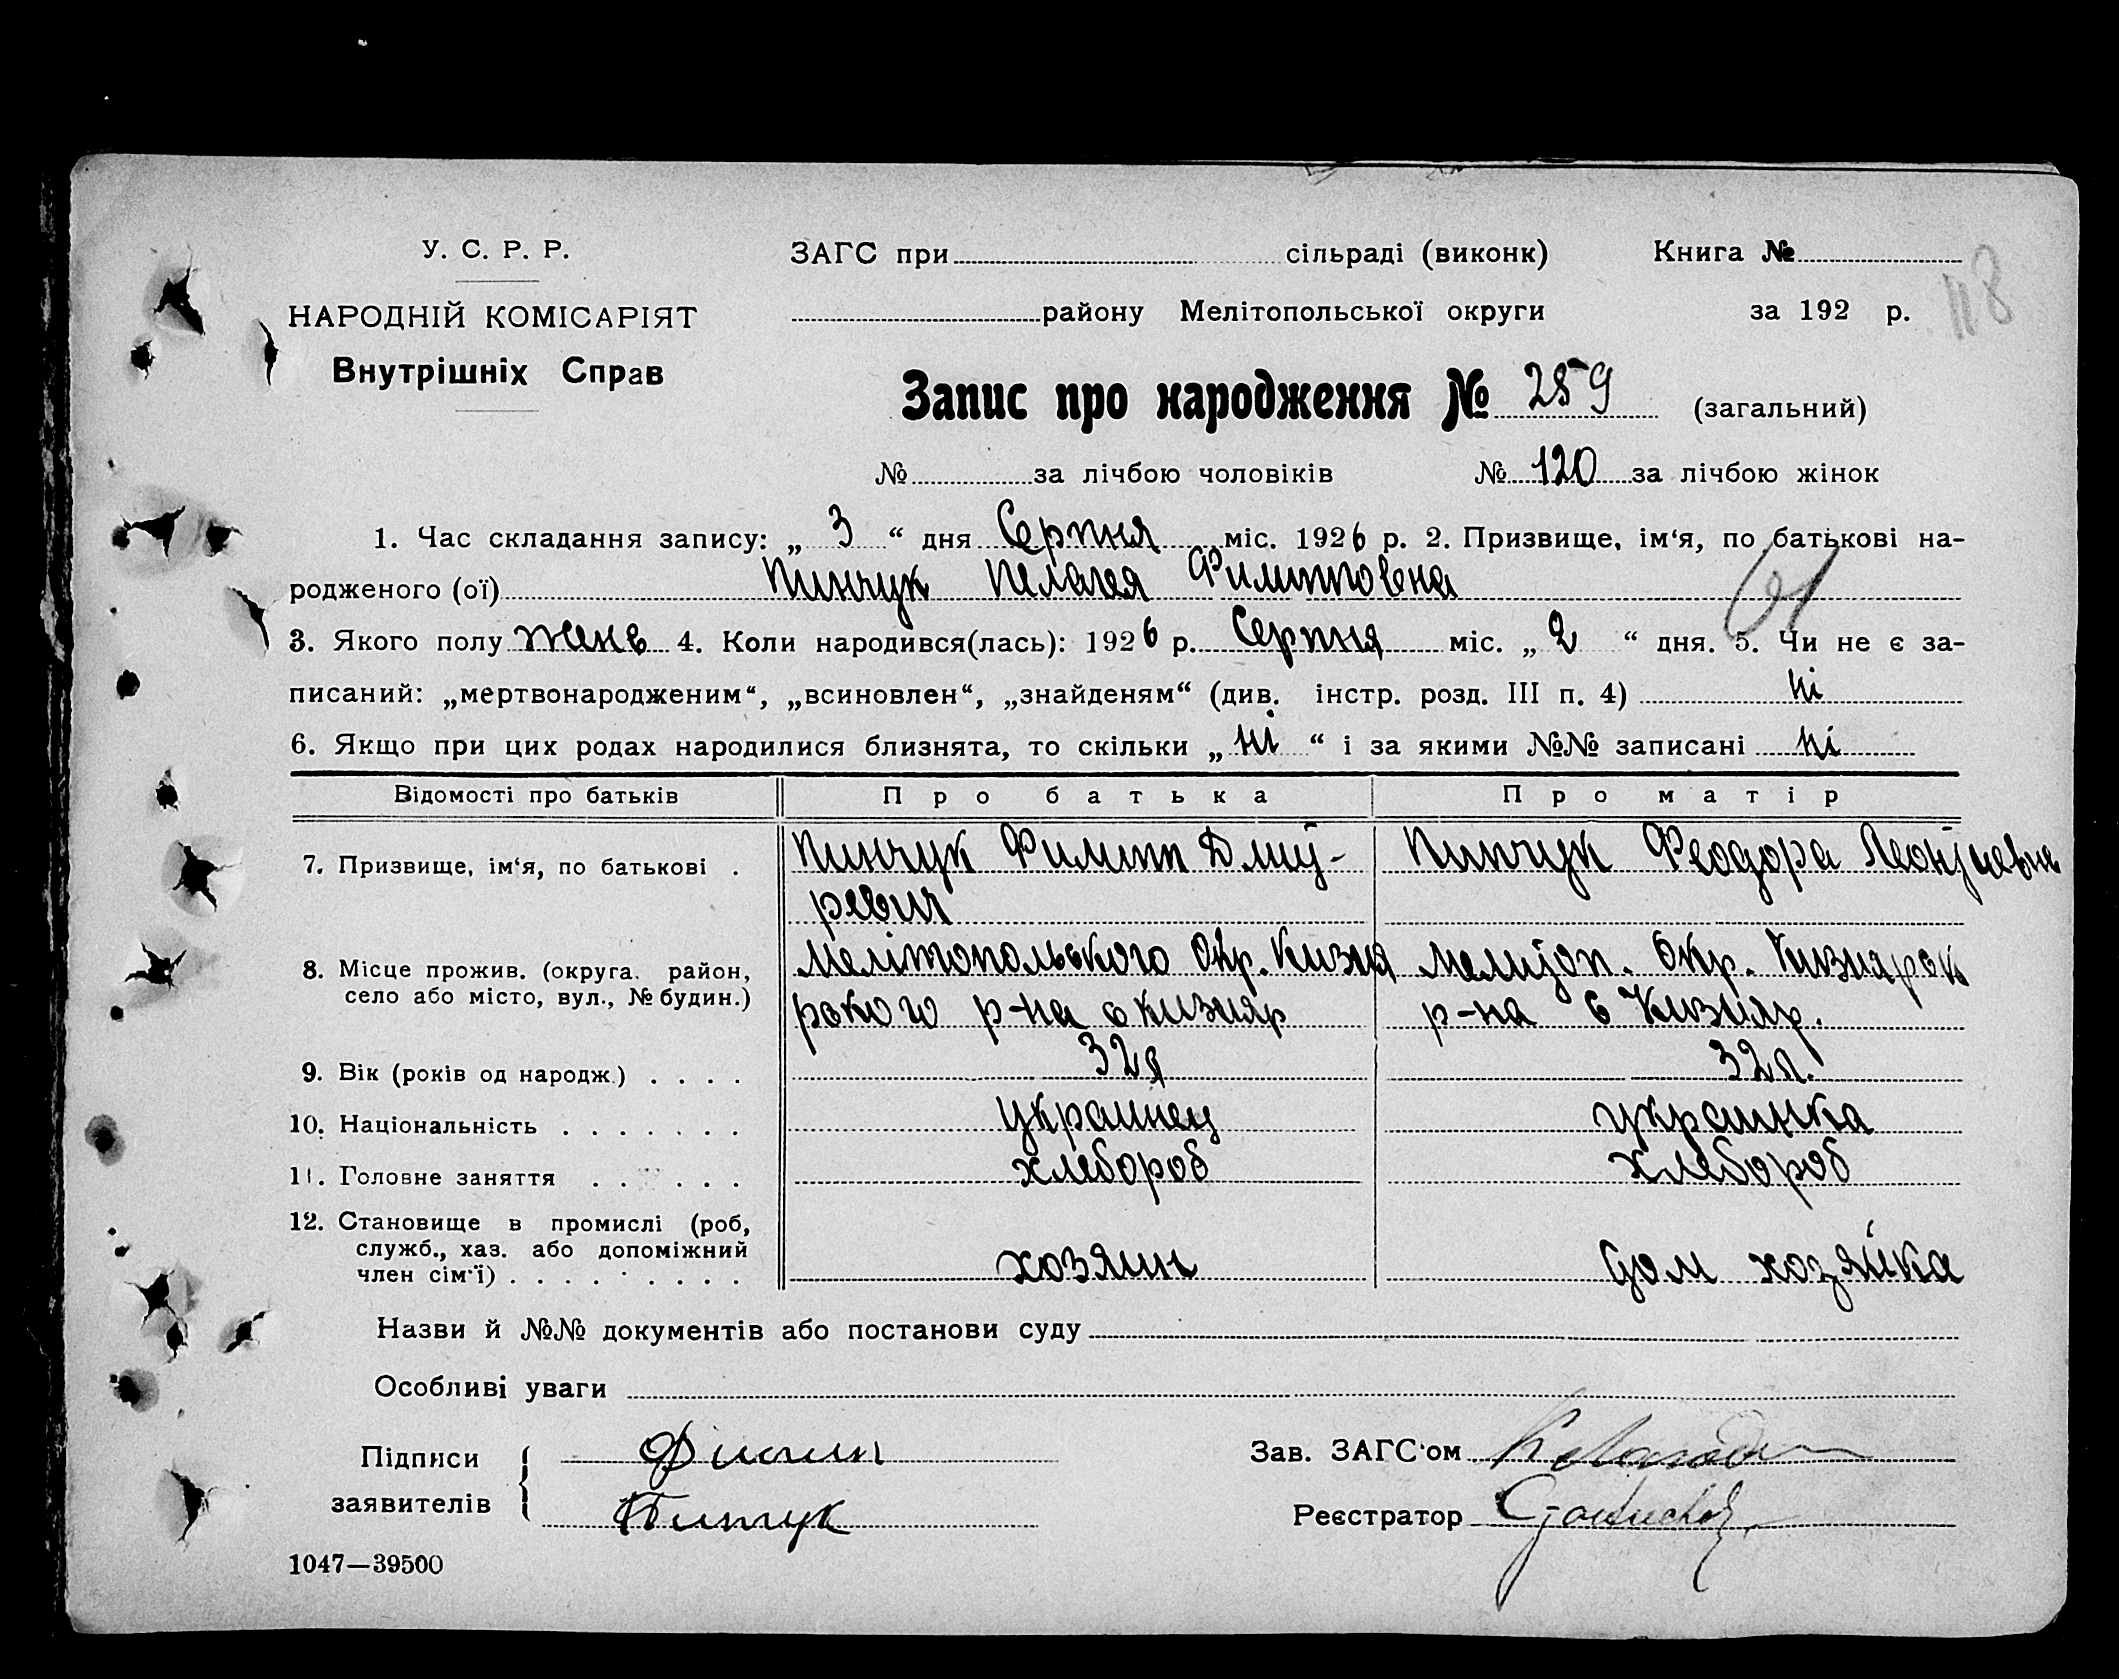 У. С. Р. Р.
НАРОДНІЙ КОМІСАРІЯТ
Внутрішніх Справ
ЗАГС при сільраді (виконк) Книга №
району Мелітопольської округи за 192 р.
118
Запис про народження № 259 (загальний)
№ за лічбою чоловіків № 120 за лічбою жінок
1. Час складання запису: „ 3 “ дня Серпня міс. 1926 р. 2. Призвище, ім‘я, по батькові на-
родженого (ої) Пинчук Пелагея Филипповна
3. Якого полу женс 4. Коли народився(лась): 1926 р. Серпня міс. „ 2 “ дня. 5. Чи не є за-
писаний: „мертвонародженим“, „всиновлен“, „знайденям“ (див. інстр. розд. III п. 4) ні
6. Якщо при цих родах народилися близнята, то скільки „ ні “ і за якими №№ записані ні
Відомості про батьків Про батька Про матір
7. Призвище, ім‘я, по батькові . Пинчук Филипп Дмит- Пинчук Феодора
ревич
8. Місце прожив. (округа, район, Мелітопольского Окр. Кизия Мелитоп. Окр. Кизиярск
село або місто, вул., № будин.) рского р-на с Кизияр р-на с Кизияр.
9. Вік (років од народж.) . . . . 32л 32л.
10. Національність . . . . . . . украинец украинка
11. Головне заняття . . . . . . хлебороб хлебороб
12. Становище в промислі (роб,
служб., хаз. або допоміжний
член сім‘ї) . . . . . . . . . хозяин дом хозяйка
Назви й №№ документів або постанови суду
Особливі уваги
Підписи Филип Зав. ЗАГС‘ом
заявителів Пинчук Реєстратор
1047—39500